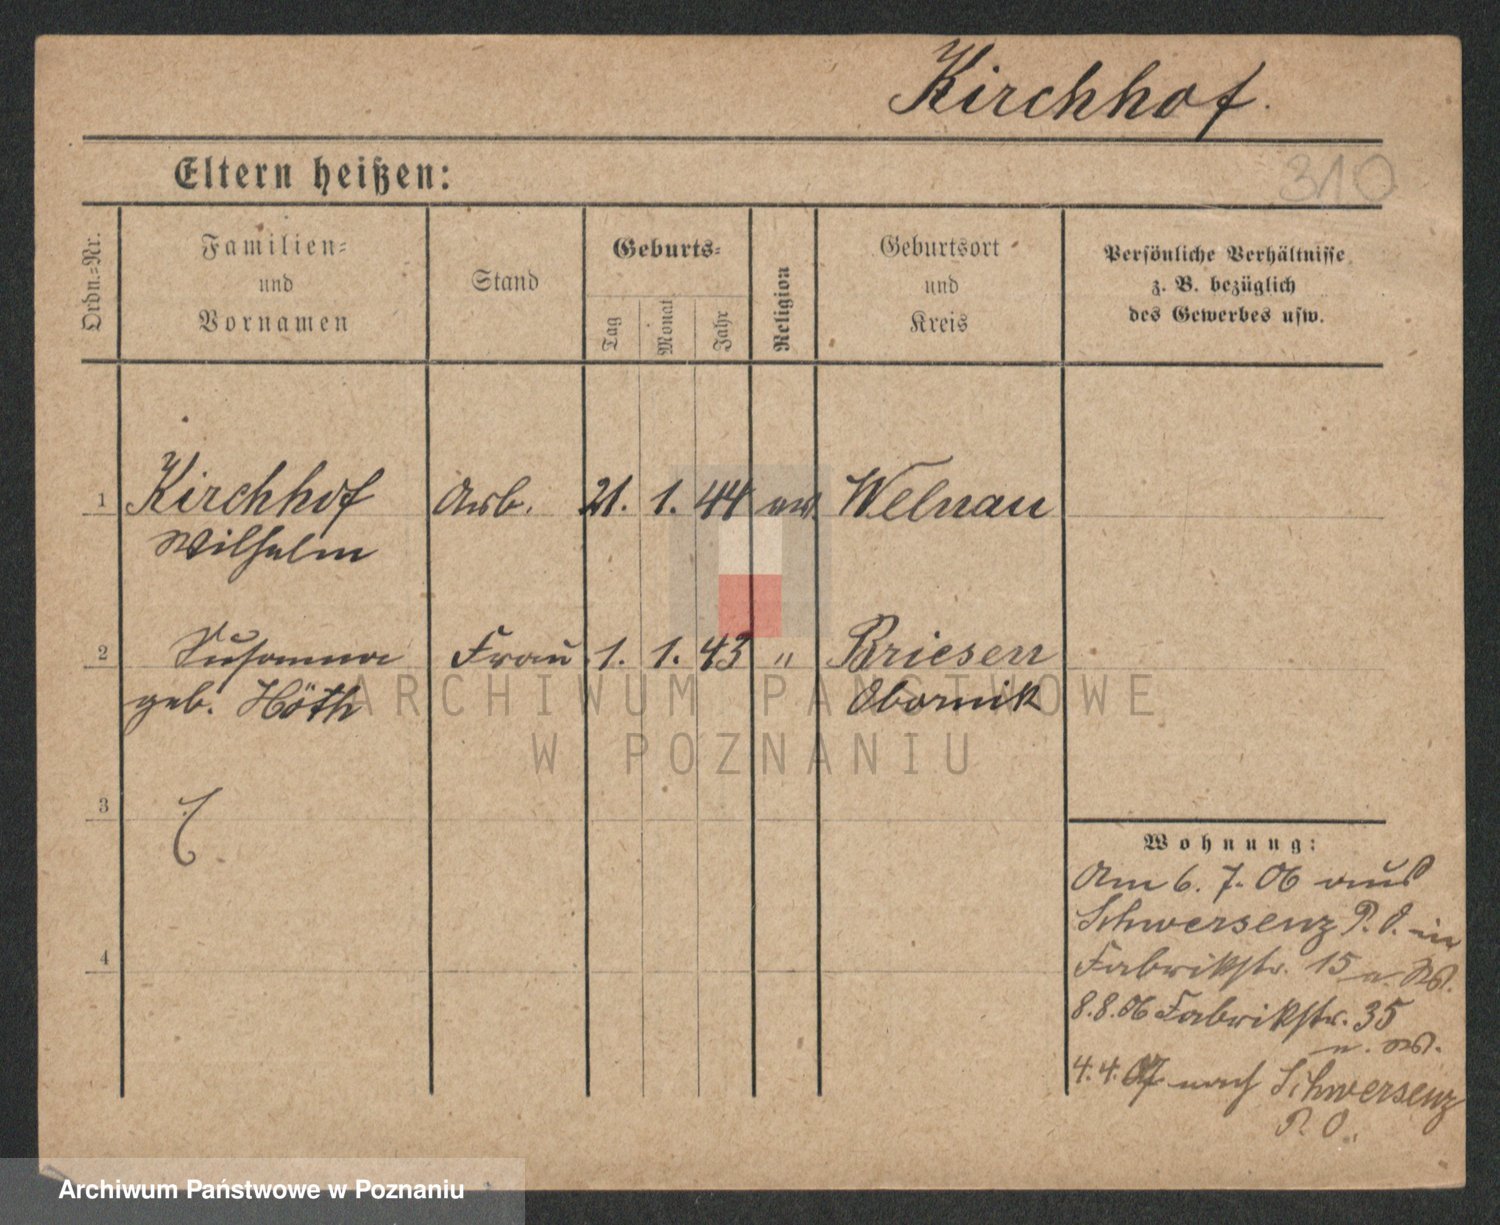 Kirchhof.
310
Eltern heißen:
Ordn.=Nr.
Familien=
und
Vornamen
Stand
Geburts=
Tag
Monat
Jahr
Religion
Geburtsort
und
Kreis
Persönliche Verhältnisse
z. B. bezüglich
des Gewerbes usw.
1 Kirchhof Arb. 21. 1. 44 ev. Welnau
Wilhelm
2 Susanna Frau 1. 1. 43 " Briesen
geb. Höth Obornik
3
4
Wohnung:
Am 6. 7. 06 aus
Schwersenz P. O. in
Fabrikstr. 15
8.8.06 Fabrikstr. 35
4.4.07 nach Schwersenz
P. O.
ARCHIWUM PAŃSTWOWE
W POZNANIU
Archiwum Państwowe w Poznaniu